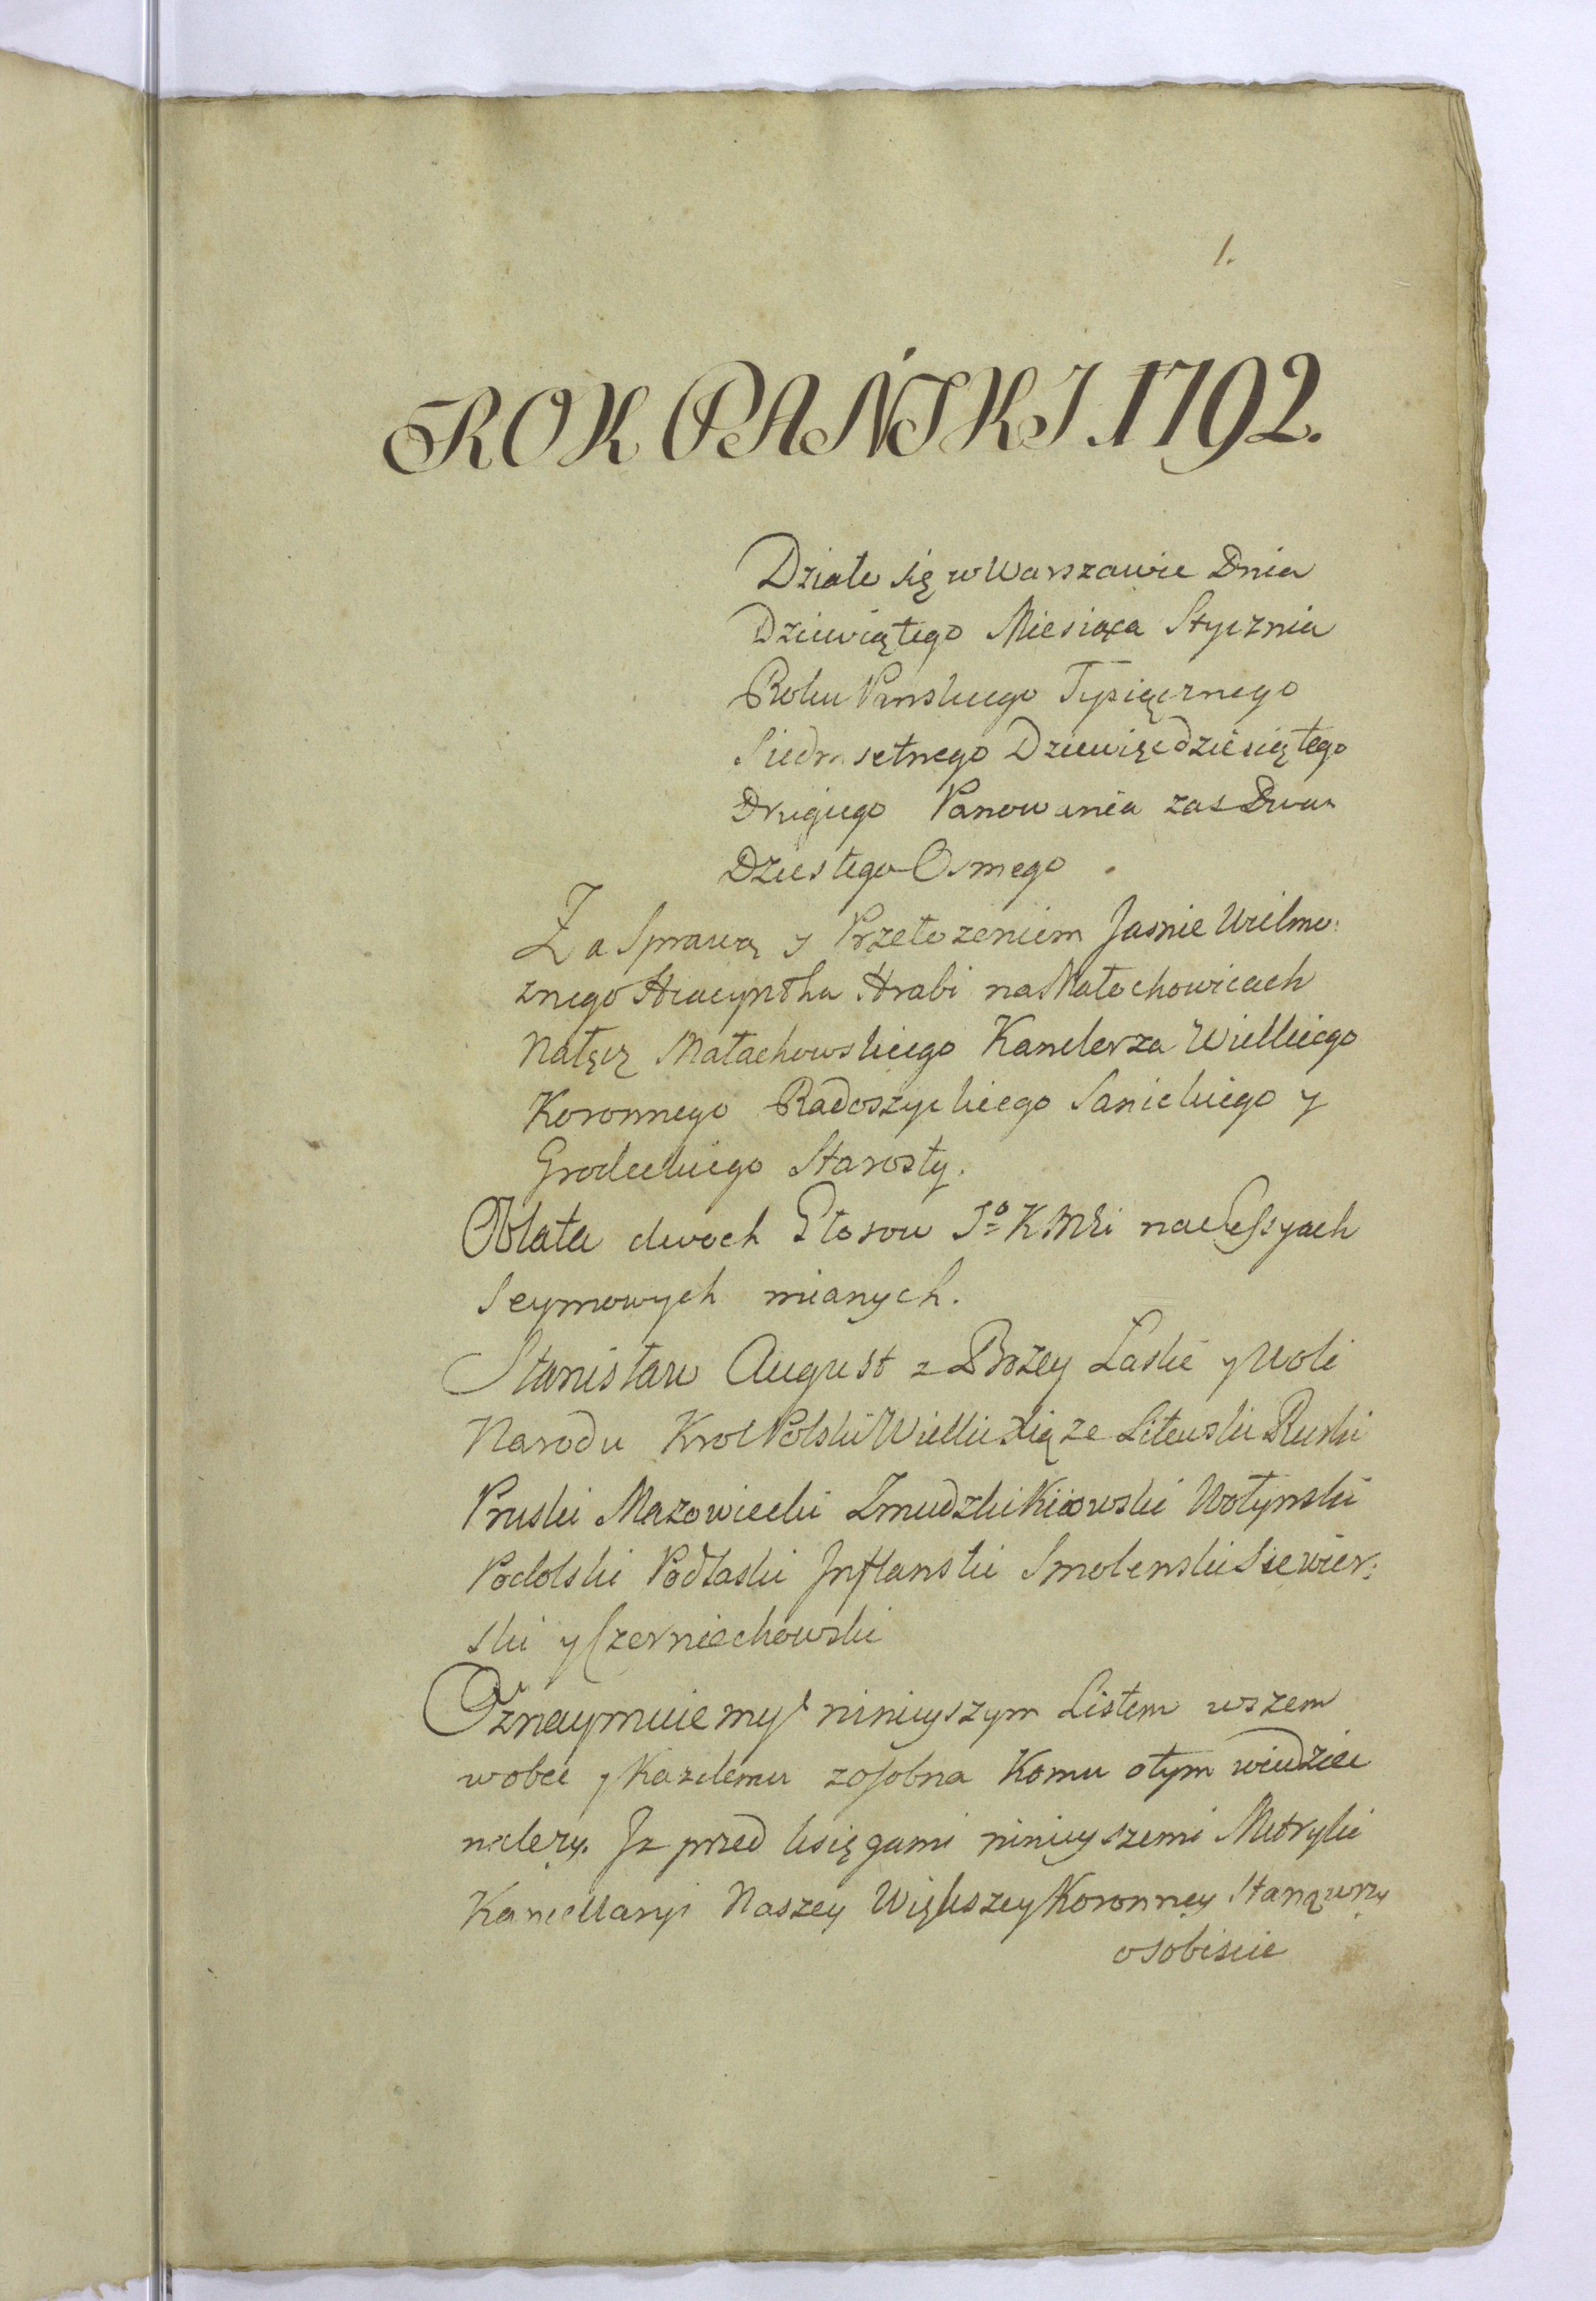 1.
ROK PAŃSKI 1792.
Działo się w Warszawie Dnia
Dziewiątego Miesiąca Stycznia
Roku Panskiego Tysiącznego
Siedmsetnego Dziewięcdziesiątego
Drugiego Panowania zas Dwu
Dziestego Osmego.
Za Sprawą y Przełozeniem Jasnie Wielmo:
znego Hiacyntha Hrabi na Małochowicach
Nałęcz Małachowskiego Kanclerza Wielkiego
Koronnego Radoszyckiego Sanickiego y
Grodeckiego Starosty.
Oblata dwoch Głosow Jº K Mci na Sessyach
Seymowych mianych.
Stanisław August z Bozey Łaski y Woli
Narodu Krol Polski Wielki Xiąze Litewski Ruski
Pruski Mazowiecki Zmudzki Kiiowski Wołynski
Podolski Podlaski Inflanski Smolenski Siewier:
ski y Czerniechowski
Oznaymuiemy ninieyszym Listem wszem
wobec y Kazdemu zosobna Komu otym wiedziec
nalezy. Iz przed księgami ninieyszemi Metryki
Kancellaryi Naszey Większey Koronney Stanąwszy
osobiscie